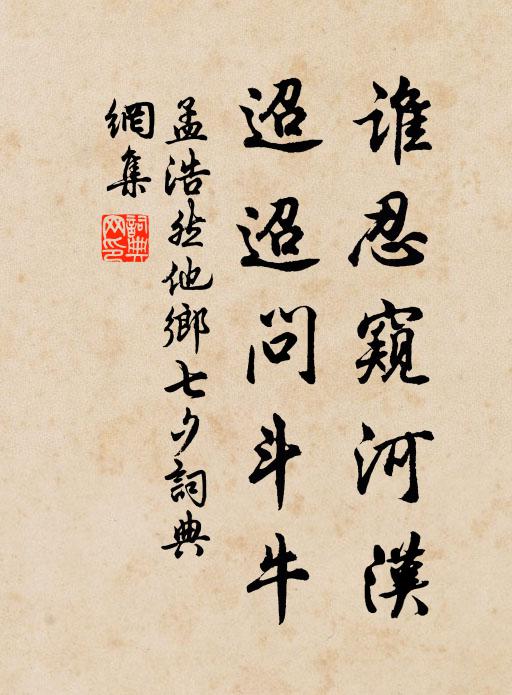 谁忍窺河漢
迢迢問斗牛
孟浩然他鄉七夕詞典
網集
詞典
网印